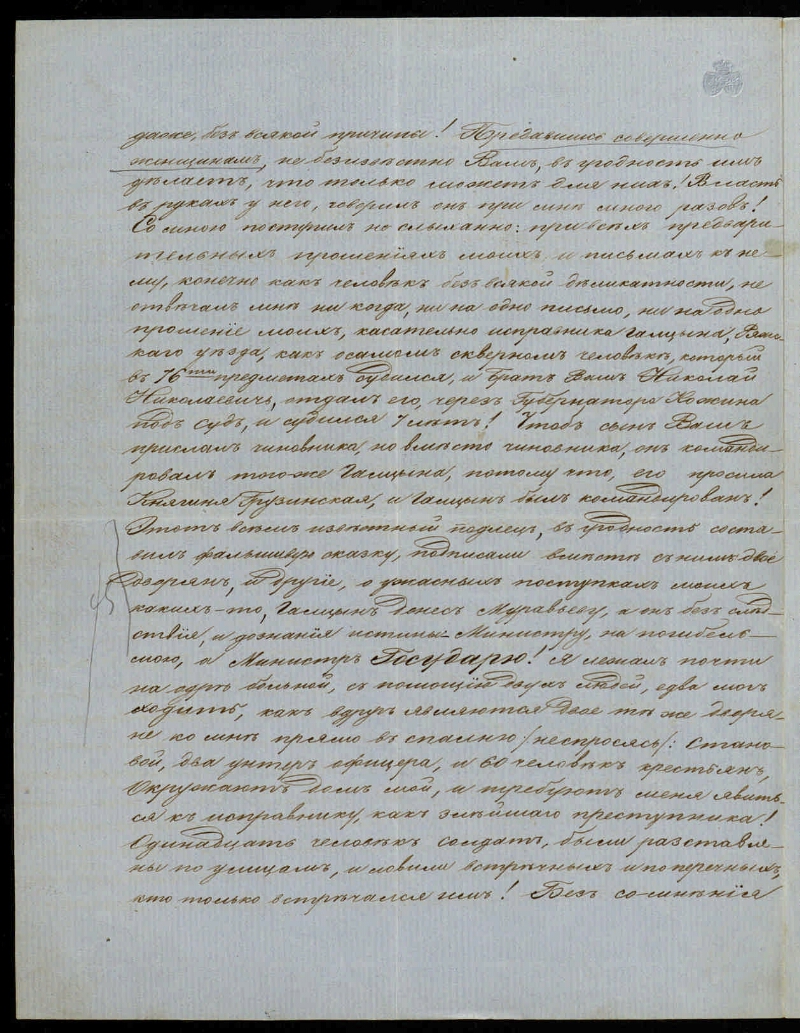 даже, безъ всякой причины! Предавшись совершенно
женщинамъ, не безизвѣстно Вамъ, въ угодность имъ
дѣлаетъ, что только можетъ для нихъ! Власть
въ рукахъ у него, говорилъ онъ при мнѣ много разовъ!
Со мною поступилъ не слыханно: при всѣхъ предвари-
тельныхъ прошеніяхъ моихъ и письмахъ къ не-
му, конечно какъ человѣкъ безъ всякой деликатности, не
отвѣчалъ мнѣ ни когда, ни на одно письмо, ни на одно
прошеніе моихъ, касательно исправника Галцына,
каго уѣзда, какъ о самомъ скверномъ человѣкѣ, который
въ 76ти предметахъ судился, и братъ Вашъ Николай
Николаевичь, отдалъ его, черезъ Губернатора Кожина
подъ судъ, и судился 7 лѣтъ! Чтобъ сынъ Вашъ
прислалъ чиновника, но вмѣсто чиновника, онъ команди-
ровалъ того-же Галцына, потому что, его просила
Княгиня Грузинская, и Галцынъ былъ командированъ!
Этотъ всѣмъ извѣстный подлецъ, въ угодность соста-
вилъ фальшивую сказку, подписали вмѣстѣ съ нимъ двое
дворянъ, и другіе, о ужасныхъ поступкахъ моихъ
какихъ-то, Галцынъ донесъ Муравьеву, а онъ безъ слѣд-
ствія, и дознанія истины - Министру, на погибель -
мою, а Министръ Государю! Я лежалъ почти
на одрѣ больной, съ помощію двухъ людей, едва могъ
ходить, какъ вдругъ являются двое тѣ же дворя-
не ко мнѣ прямо въ спалню /неспросясь/: Стано-
вой, два унтеръ офицера, и 60 человѣкъ крестьянъ,
Окружаютъ домъ мой, и требуютъ меня явить-
ся къ исправнику, какъ злѣйшаго преступника!
Одинадцать человѣкъ солдатъ, были разставле-
ны по улицамъ, и ловили встрѣчныхъ и поперечныхъ,
кто только встрѣчался имъ! Безъ со-мнѣнія